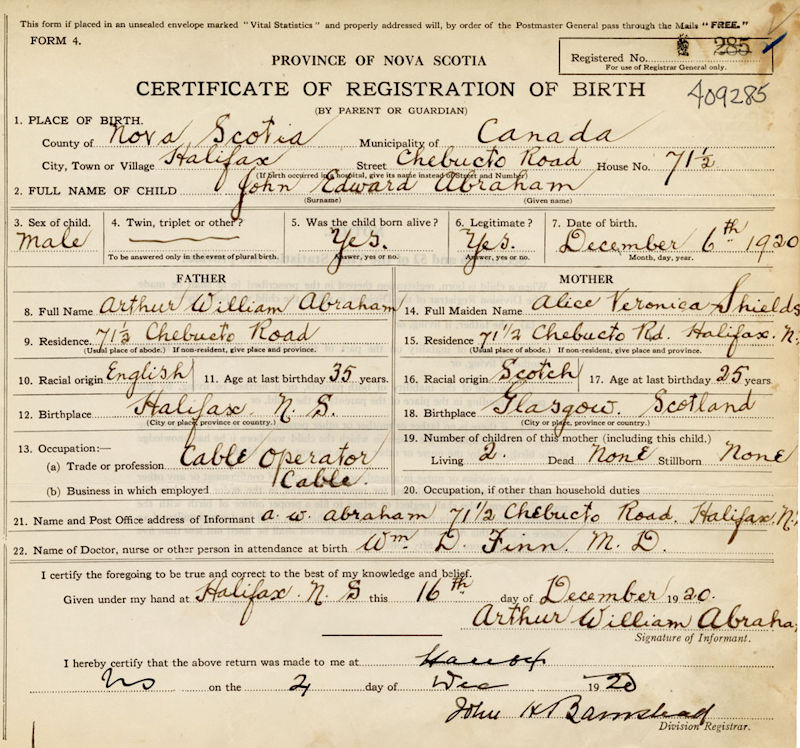 This form if placed in an unsealed envelope marked "Vital Statistics" and properly addressed will, by order of the Postmaster General pass through the Mails "FREE."
FORM 4.
Registered No. 285
For use of Registrar General only.
PROVINCE OF NOVA SCOTIA
CERTIFICATE OF REGISTRATION OF BIRTH
409285
(BY PARENT OR GUARDIAN)
1. PLACE OF BIRTH.
County of Nova Scotia Municipality of Canada
City, Town or Village Halifax Street Chebucto Road House No. 71½
(If birth occurred in a hospital, give its name instead of Street and Number)
2. FULL NAME OF CHILD John Edward Abraham
(Surname) (Given name)
3. Sex of child. 4. Twin, triplet or other? 5. Was the child born alive? 6. Legitimate? 7. Date of birth.
Male Yes. Yes. December 6th 1920
To be answered only in the event of plural birth. Answer, yes or no. Answer, yes or no. Month, day, year.
FATHER
8. Full Name Arthur William Abraham
9. Residence. 71½ Chebucto Road
(Usual place of abode.) If non-resident, give place and province.
10. Racial origin English 11. Age at last birthday 35 years.
12. Birthplace Halifax N. S.
(City or place, province or country.)
13. Occupation:—
(a) Trade or profession Cable Operator
(b) Business in which employed Cable.
MOTHER
14. Full Maiden Name Alice Veronica Shields
15. Residence 71½ Chebucto Rd. Halifax. N.
(Usual place of abode.) If non-resident, give place and province.
16. Racial origin Scotch 17. Age at last birthday 25 years.
18. Birthplace Glasgow. Scotland
(City or place, province or country.)
19. Number of children of this mother (including this child.)
Living 2. Dead None Stillborn None
20. Occupation, if other than household duties
21. Name and Post Office address of Informant A. W. Abraham 71½ Chebucto Road. Halifax. N.
22. Name of Doctor, nurse or other person in attendance at birth Wm. D. Finn. M. D.
I certify the foregoing to be true and correct to the best of my knowledge and belief.
Given under my hand at Halifax. N. S this 16th day of December 1920.
Arthur William Abraha
Signature of Informant.
I hereby certify that the above return was made to me at
NS on the day of Dec 1920
John H Barnstead
Division Registrar.